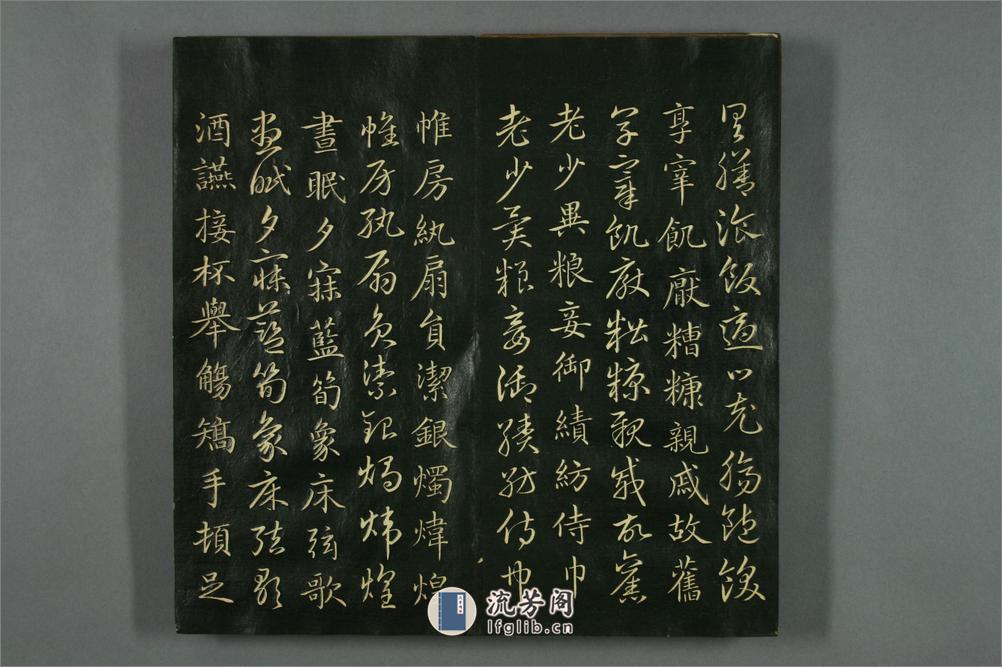 具膳飡飯適口充腸飽飫
享宰飢厭糟糠親戚故舊
享宰飢厭糟糠親戚故舊
老少異粮妾御績紡侍巾
老少異粮妾御績紡侍巾
帷房紈扇員潔銀燭煒煌
帷房紈扇員潔銀燭煒煌
晝眠夕寐藍筍象床弦歌
晝眠夕寐藍筍象床弦歌
酒讌接杯舉觴矯手頓足
流芳阁
lfglib.cn